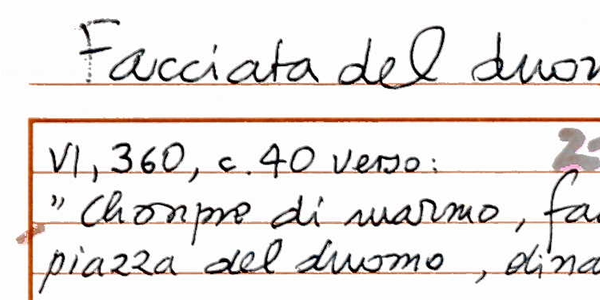 Facciata del duom
VI, 360, c. 40 verso:
" Chonpre di marmo, fa
piazza del duomo, dina